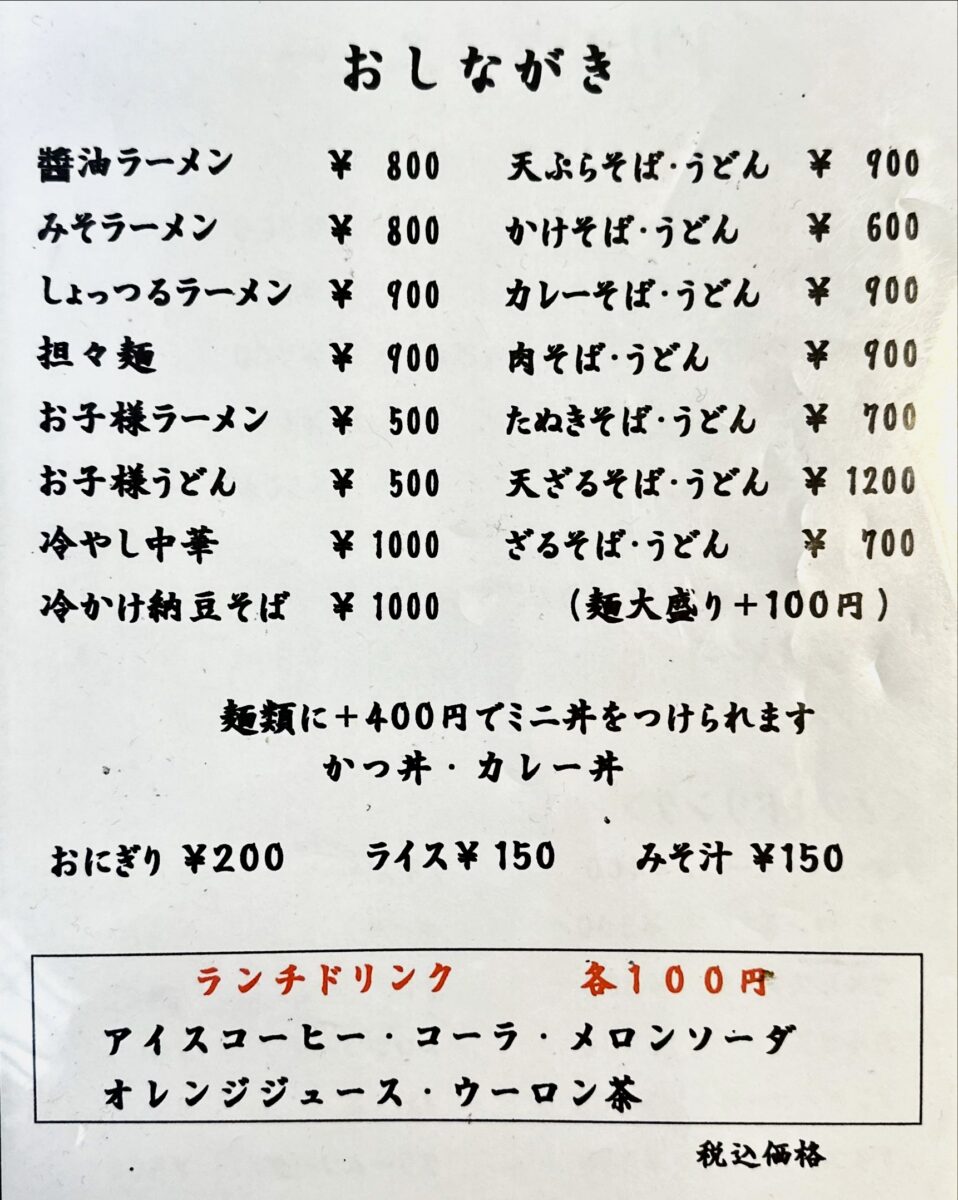 おしながき
醬油ラーメン ￥ 800 天ぷらそば・うどん ￥ 900
みそラーメン ￥ 800 かけそば・うどん ￥ 600
しょっつるラーメン ￥ 900 カレーそば・うどん ￥ 900
担々麺 ￥ 900 肉そば・うどん ￥ 900
お子様ラーメン ￥ 500 たぬきそば・うどん ￥ 700
お子様うどん ￥ 500 天ざるそば・うどん ￥ 1200
冷やし中華 ￥ 1000 ざるそば・うどん ￥ 700
冷かけ納豆そば ￥ 1000 （麺大盛り＋100円）
麺類に＋400円でミニ丼をつけられます
かつ丼・カレー丼
おにぎり ￥200 ライス￥ 150 みそ汁 ￥150
ランチドリンク 各１００円
アイスコーヒー・コーラ・メロンソーダ
オレンジジュース・ウーロン茶
税込価格